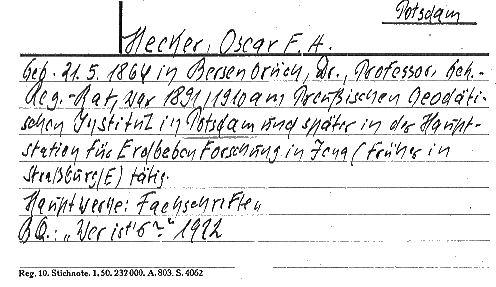 Potsdam
Hecker, Oscar F. A.
Geb. 21.5.1864 in Bersenbrück, Dr., Professor, Geh.-
Reg.-Rat, war 1891/1910 am Preußischen Geodäti-
schen Institut in Potsdam und später in der Haupt-
station für Erdbebenforschung in Jena (früher in
Straßburg/E) tätig.
Hauptwerke: Fachschriften
BQ.: „Wer ist's?" 1922
Reg. 10. Stichnote. 1. 50. 232 000. A. 803. S. 4062